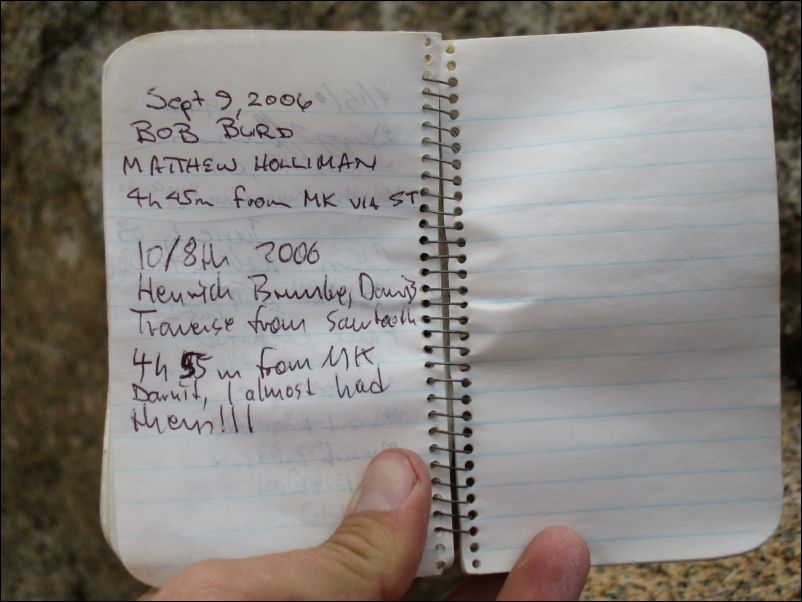 Sept 9, 2006
BOB BURD
MATTHEW HOLLIMAN
4h 45m from MK VIA ST
10/8th 2006
Henrich Davis
Traverse from Sawtooth
4h 55m from MK
Damit, I almost had
them!!!